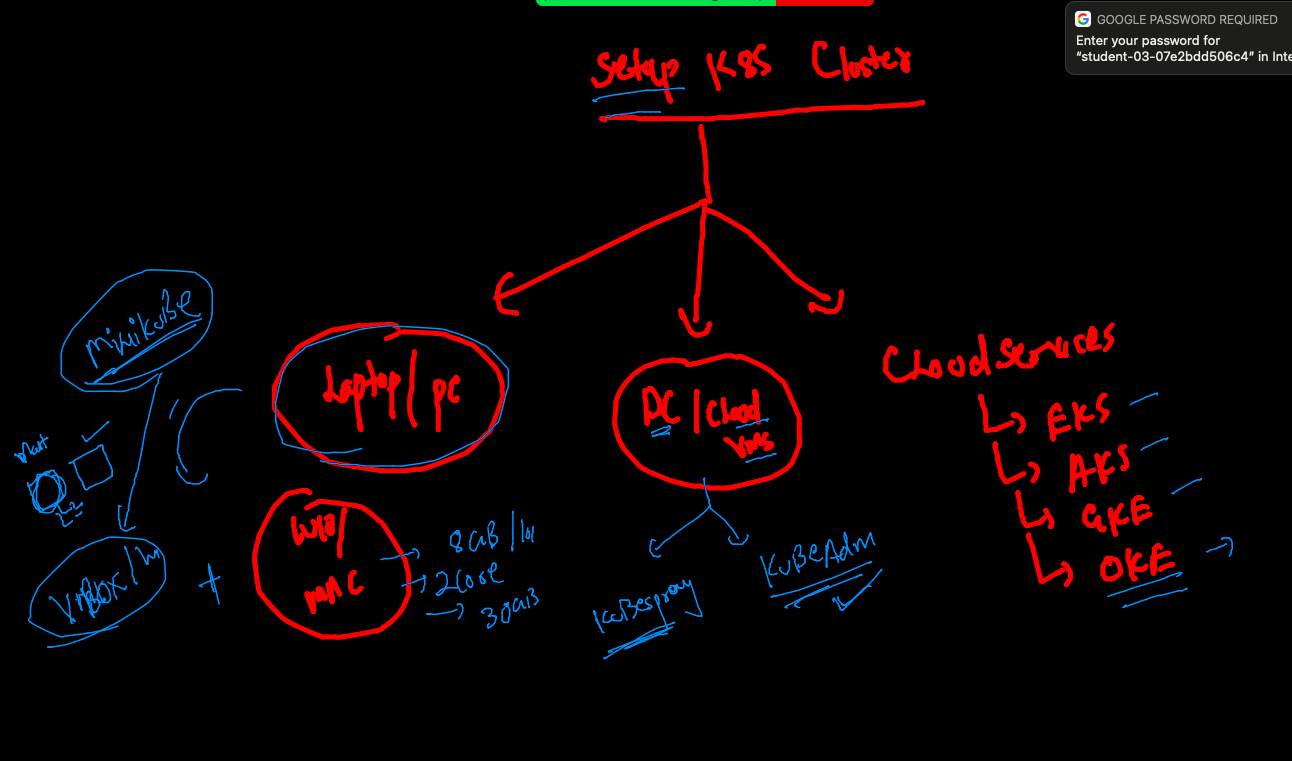 GOOGLE PASSWORD REQUIRED
Enter your password for
"student-03-07e2bdd506c4" in Inte
Setup K8S Cluster
minikuBe
Laptop/PC
DC | Cloud
Vms
Cloud Services
EKS
AKS
GKE
OKE
start
MAC
8GB
2 Core
30GB
+
KuBespray
KuBeAdm